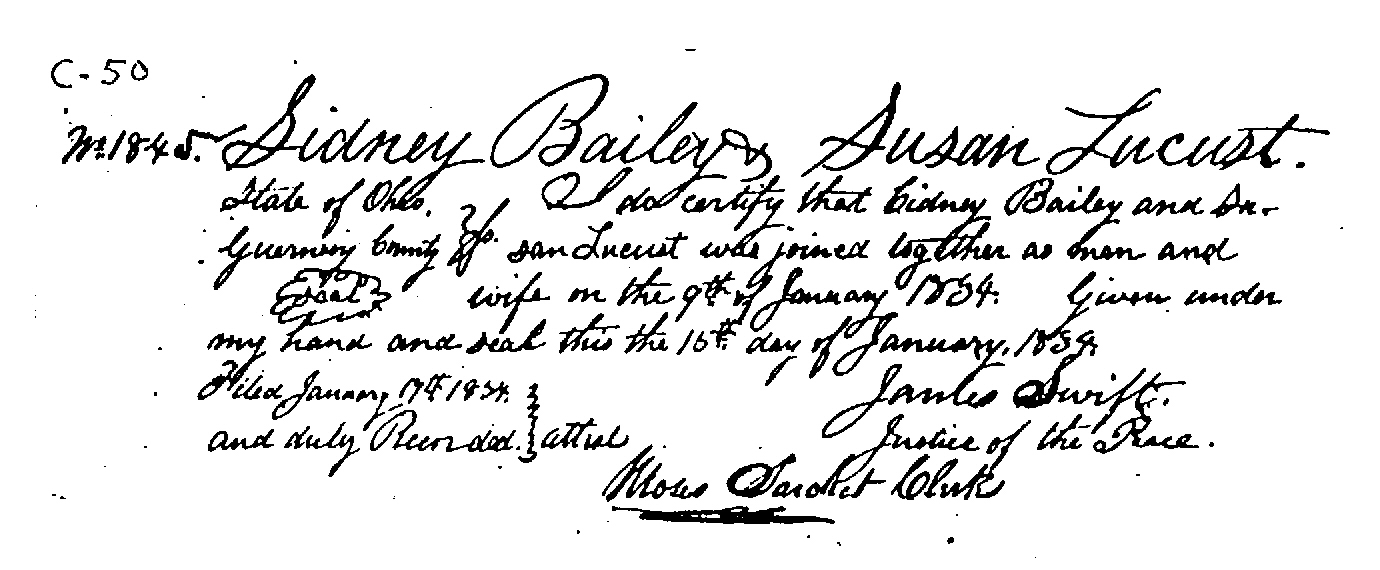 C-50
No. 1845. Sidney Bailey & Susan Lucust.
State of Ohio. } I do certify that Sidney Bailey and Su-
Guernsey County } ss. san Lucust was joined together as man and
Seal wife on the 9th of January 1834. Given under
my hand and seal this the 15th day of January, 1834.
Filed January 17th 1834. } James Swift.
and duly Recorded. } attest Justice of the Peace.
Moses Sarchet Clerk